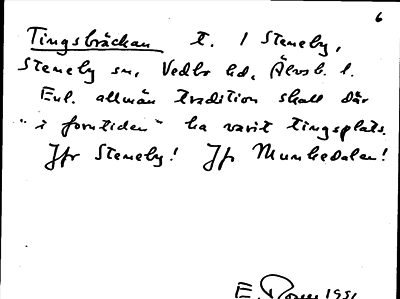 6
Tingsbräckan t. 1 Steneby,
Steneby sn, Vedbo hd, Älvsb. l.
Enl. allmän tradition skall där
"i forntiden" ha varit tingsplats.
Jfr Steneby! Jfr Munkedalen!
E. 1951